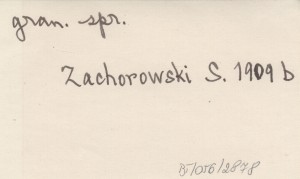 gran. spr.
Zachorowski S. 1909 b
BJ/016/2878